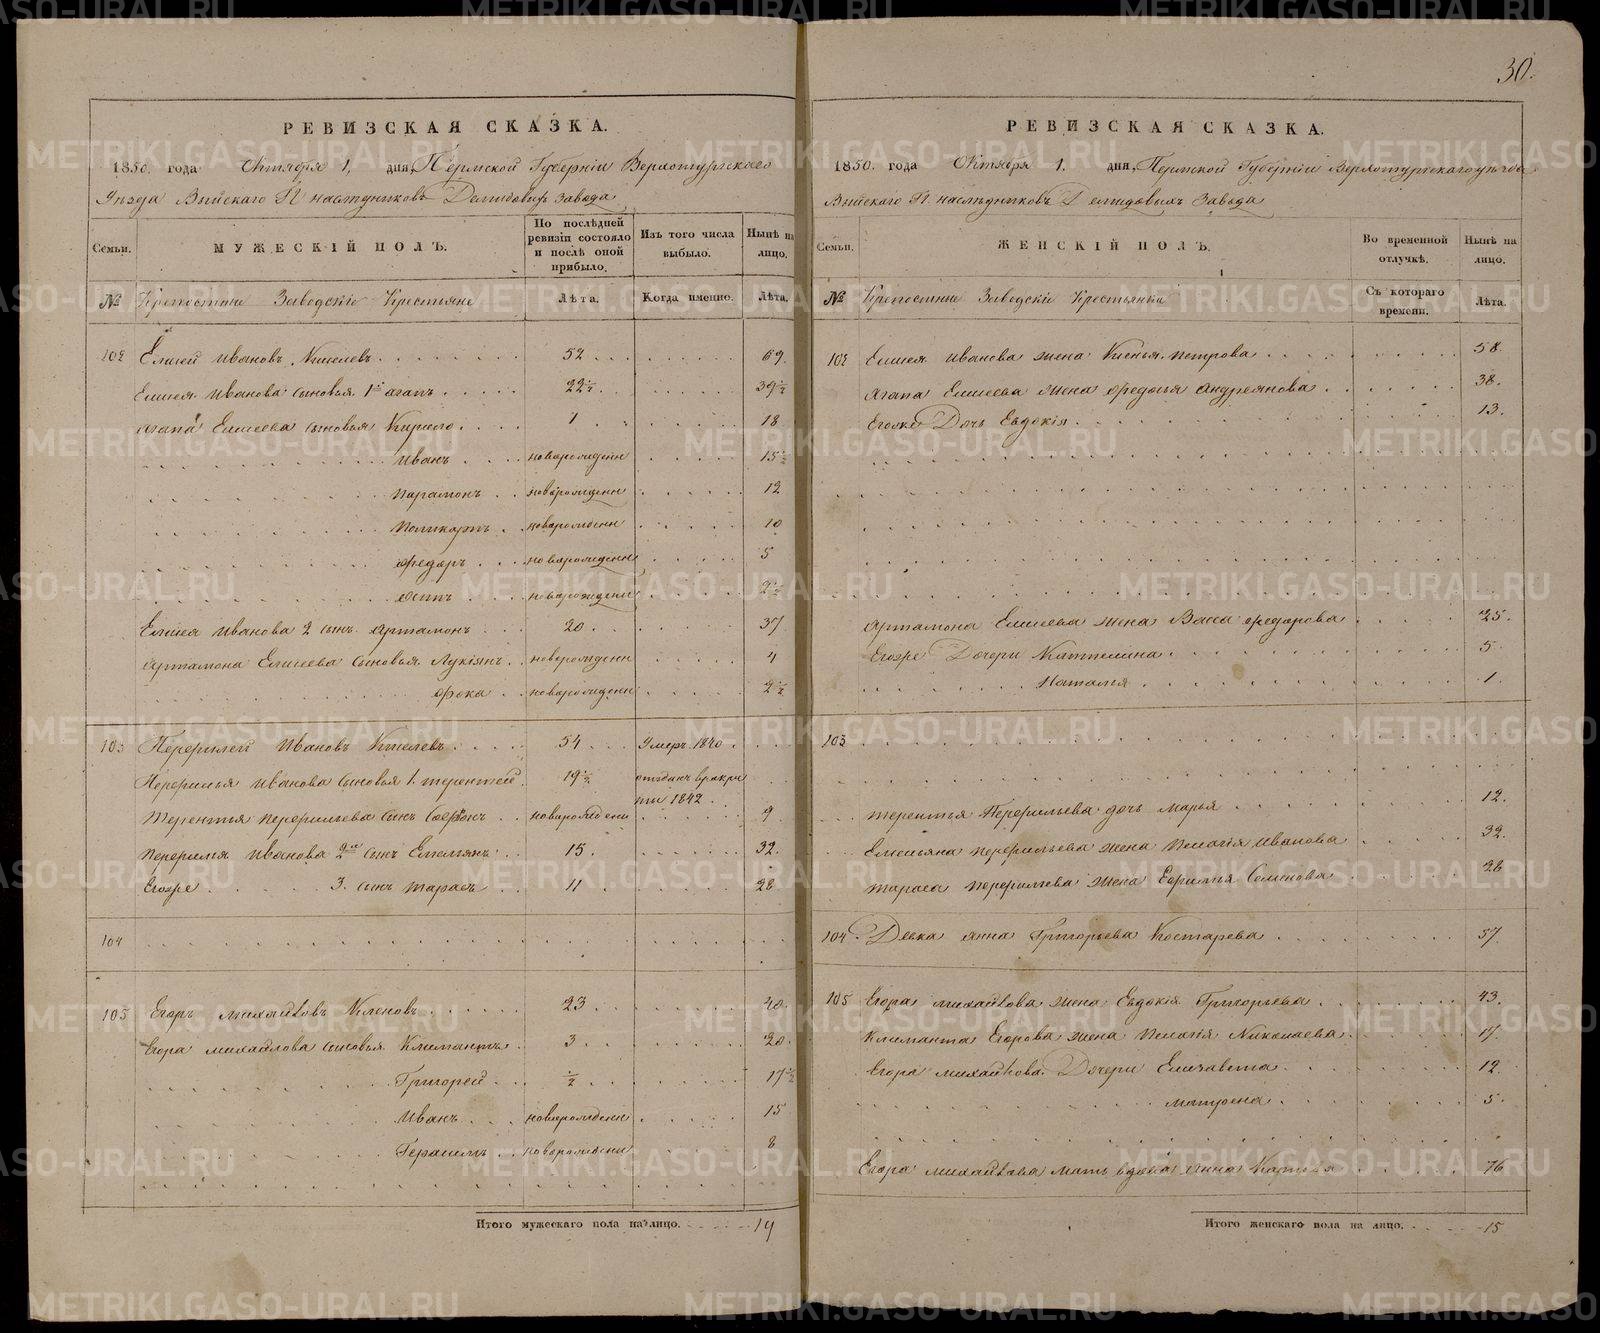 30.
РЕВИЗСКАЯ СКАЗКА.
1850. года Октября 1, дня, Пермской Губернiи Верхотурскаго
Уѣзда Выйскаго Г. наслѣдниковъ Демидовыхъ Завода
Семьи.
МУЖЕСКIЙ ПОЛЪ.
По послѣдней ревизiи состояло и послѣ оной прибыло.
Изъ того числа выбыло.
Нынѣ на лицо.
№ Крепостные Заводскiе Крестьяне
Лѣта. Когда именно. Лѣта.
102 Елисей Ивановъ Киселевъ 52 69.
Елисея Иванова сыновья 1й Агапъ 22½ 39½
Агапа Елисеева сыновья Кирило 1 18
Иванъ новорожденн 15½
Парамонъ новорожденн 12
Поликарпъ новорожденн 10
Федоръ новорожденн 5
Осипъ новорожденн 2½
Елисея Иванова 2 сынъ Артамонъ 20 37
Артамона Елисеева сыновья Лукiянъ новорожденн 4
Фока новорожденн 2½
103 Перфилей Ивановъ Киселевъ 54 Умеръ 1840
Перфилья Иванова сыновья 1. Терентей 19½ отданъ в рекру
ты 1842
Терентья Перфильева сынъ новорожденн 9
Перфилья Иванова 2й сынъ Емельянъ 15 32.
Егоже 3. сынъ Тарасъ 11 28
104
105 Егоръ Михайловъ Кленовъ 23 40
Егора Михайлова сыновья Климантъ 3 20
Григорей ½ 17½
Иванъ новорожденн 15
Герасимъ новорожденн 8
Итого мужескаго пола на лицо. 19
РЕВИЗСКАЯ СКАЗКА.
1850. года Октября 1. дня, Пермской Губернiи Верхотурскаго уѣзда
Выйскаго Г. наслѣдниковъ Демидовыхъ Завода
Семьи.
ЖЕНСКIЙ ПОЛЪ.
Во временной отлучкѣ.
Нынѣ на лицо.
№ Крепостные Заводскiе Крестьянки
Съ котораго времени. Лѣта.
102 Елисея Иванова жена Петрова 58.
Агапа Елисеева жена Федосья Андреянова 38.
Егоже Дочь Евдокiя 13.
Артамона Елисеева жена Васса Федорова 25.
Егоже Дочери Катерина 5
Наталья 1
103
Терентья Перфильева дочь Марья 12.
Емельяна Перфильева жена Пелагiя Иванова 32.
Тараса Перфильева жена Ефимья Семенова 26
104 Девка Анна Григорьева Костарева 57
105 Егора Михайлова жена Евдокiя Григорьева 43
Климанта Егорова жена Пелагiя Николаева 17
Егора Михайлова Дочери Елизавета 12
Матрена 5
Егора Михайлова мать вдова Анна Карпова 76
Итого женскаго пола на лицо. 15
METRIKI.GASO-URAL.RU